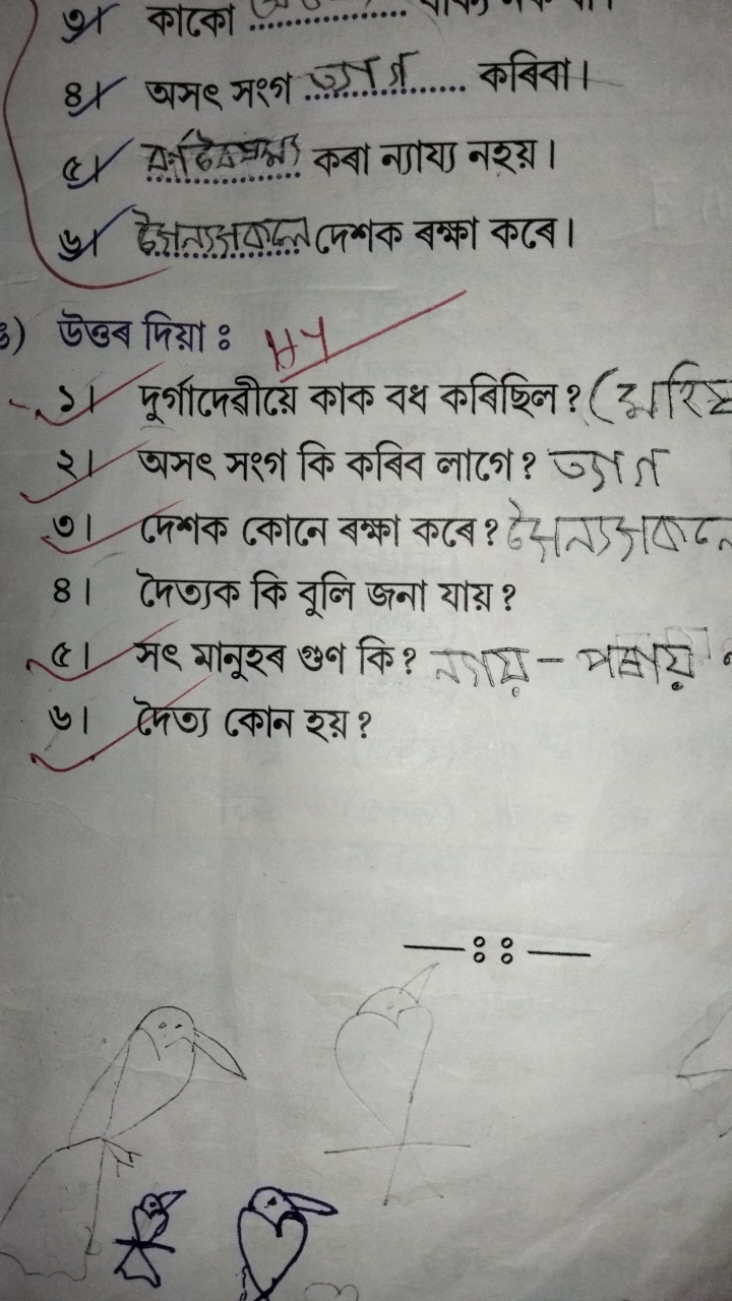 ৩। কাকো
৪। অসৎ সংগ ত্যাগ কৰিবা।
৫। কৰা ন্যায্য নহয়।
৬। সৈন্যসকলে দেশক ৰক্ষা কৰে।
উত্তৰ দিয়া ঃ HY
১। দুৰ্গাদেৱীয়ে কাক বধ কৰিছিল? (
২। অসৎ সংগ কি কৰিব লাগে? ত্যাগ
৩। দেশক কোনে ৰক্ষা কৰে? সৈন্যসকলে
৪। দৈত্যক কি বুলি জনা যায়?
৫। সৎ মানুহৰ গুণ কি? ন্যায় -
৬। দৈত্য কোন হয়?